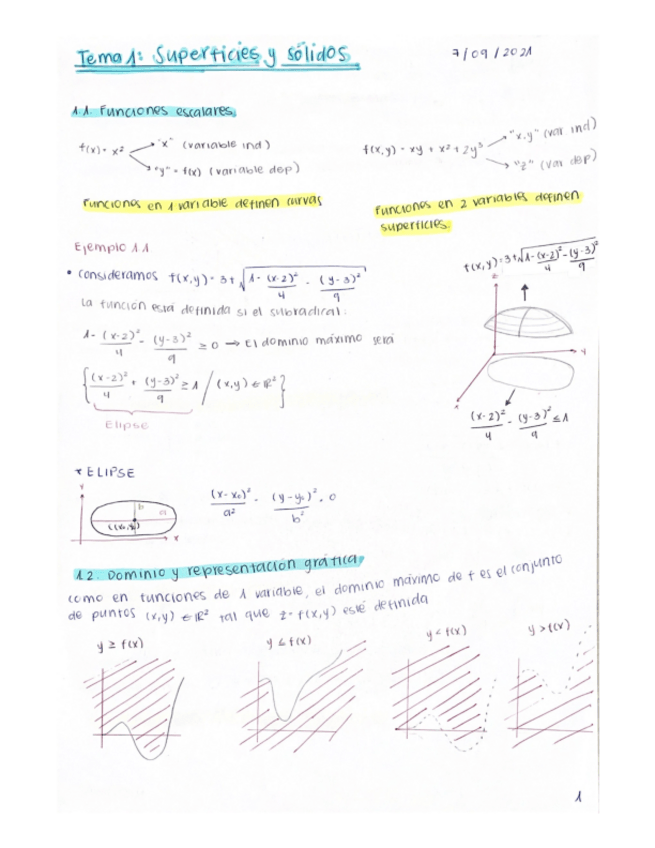 Tema 1: Superficies y sólidos.
7/09/2021
1.1. Funciones escalares
f(x) = x² "x" (variable ind)
"y" = f(x) (variable dep)
f(x,y) = xy + x² + 2y³ "x,y" (var ind)
"z" (var dep)
Funciones en 1 variable definen curvas
Funciones en 2 variables definen
superficies.
Ejemplo 1.1
• Consideramos f(x,y) = 3+√1-(x-2)²/4 - (y-3)²/9
f(x,y)=3+√1-(x-2)²/4-(y-3)²/9
La función está definida si el subradical:
1-(x-2)²/4 - (y-3)²/9 ≥ 0 → El dominio máximo será
{(x-2)²/4 + (y-3)²/9 ≥ 1 / (x,y) ∈ ℝ²}
Elipse
z
y
x
(x-2)²/4 - (y-3)²/9 ≤ 1
* ELIPSE
y
b
a
x
(x-x₀)²/a² - (y-y₀)²/b² = 0
1.2. Dominio y representación gráfica
Como en funciones de 1 variable, el dominio máximo de f es el conjunto
de puntos (x,y) ∈ ℝ² tal que z = f(x,y) esté definida
y ≥ f(x)
y ≤ f(x)
y < f(x)
y > f(x)
1